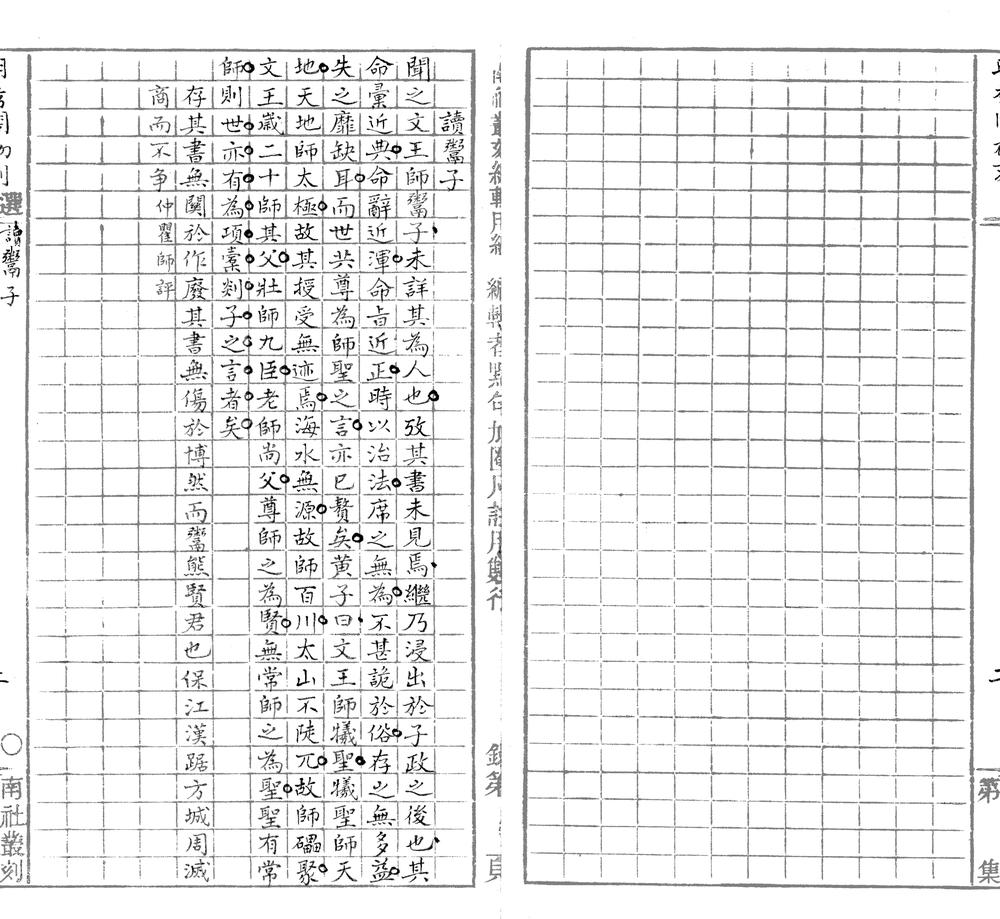 讀鬻子
聞之文王師鬻子未詳其為人也攷其書未見焉繼乃浸出於子政之後也其
命彙近典命辭近渾命旨近正時以治法席之無為不甚詭於俗存之無多益
失之靡缺耳而世共尊為師聖之言亦已贅矣黃子曰文王師犧聖犧聖師天
地天地師太極故其授受無迹焉海水無源故師百川太山不陡兀故師礧聚
文王歲二十師其父壯師九臣老師尚父尊師之為賢無常師之為聖聖有常
師則世亦有為項橐剡子之言者矣
存其書無關於作廢其書無傷於博然而鬻熊賢君也保江漢踞方城周滅
商而不爭仲瞿師評
選
讀鬻子
二
南社叢刻
第
集